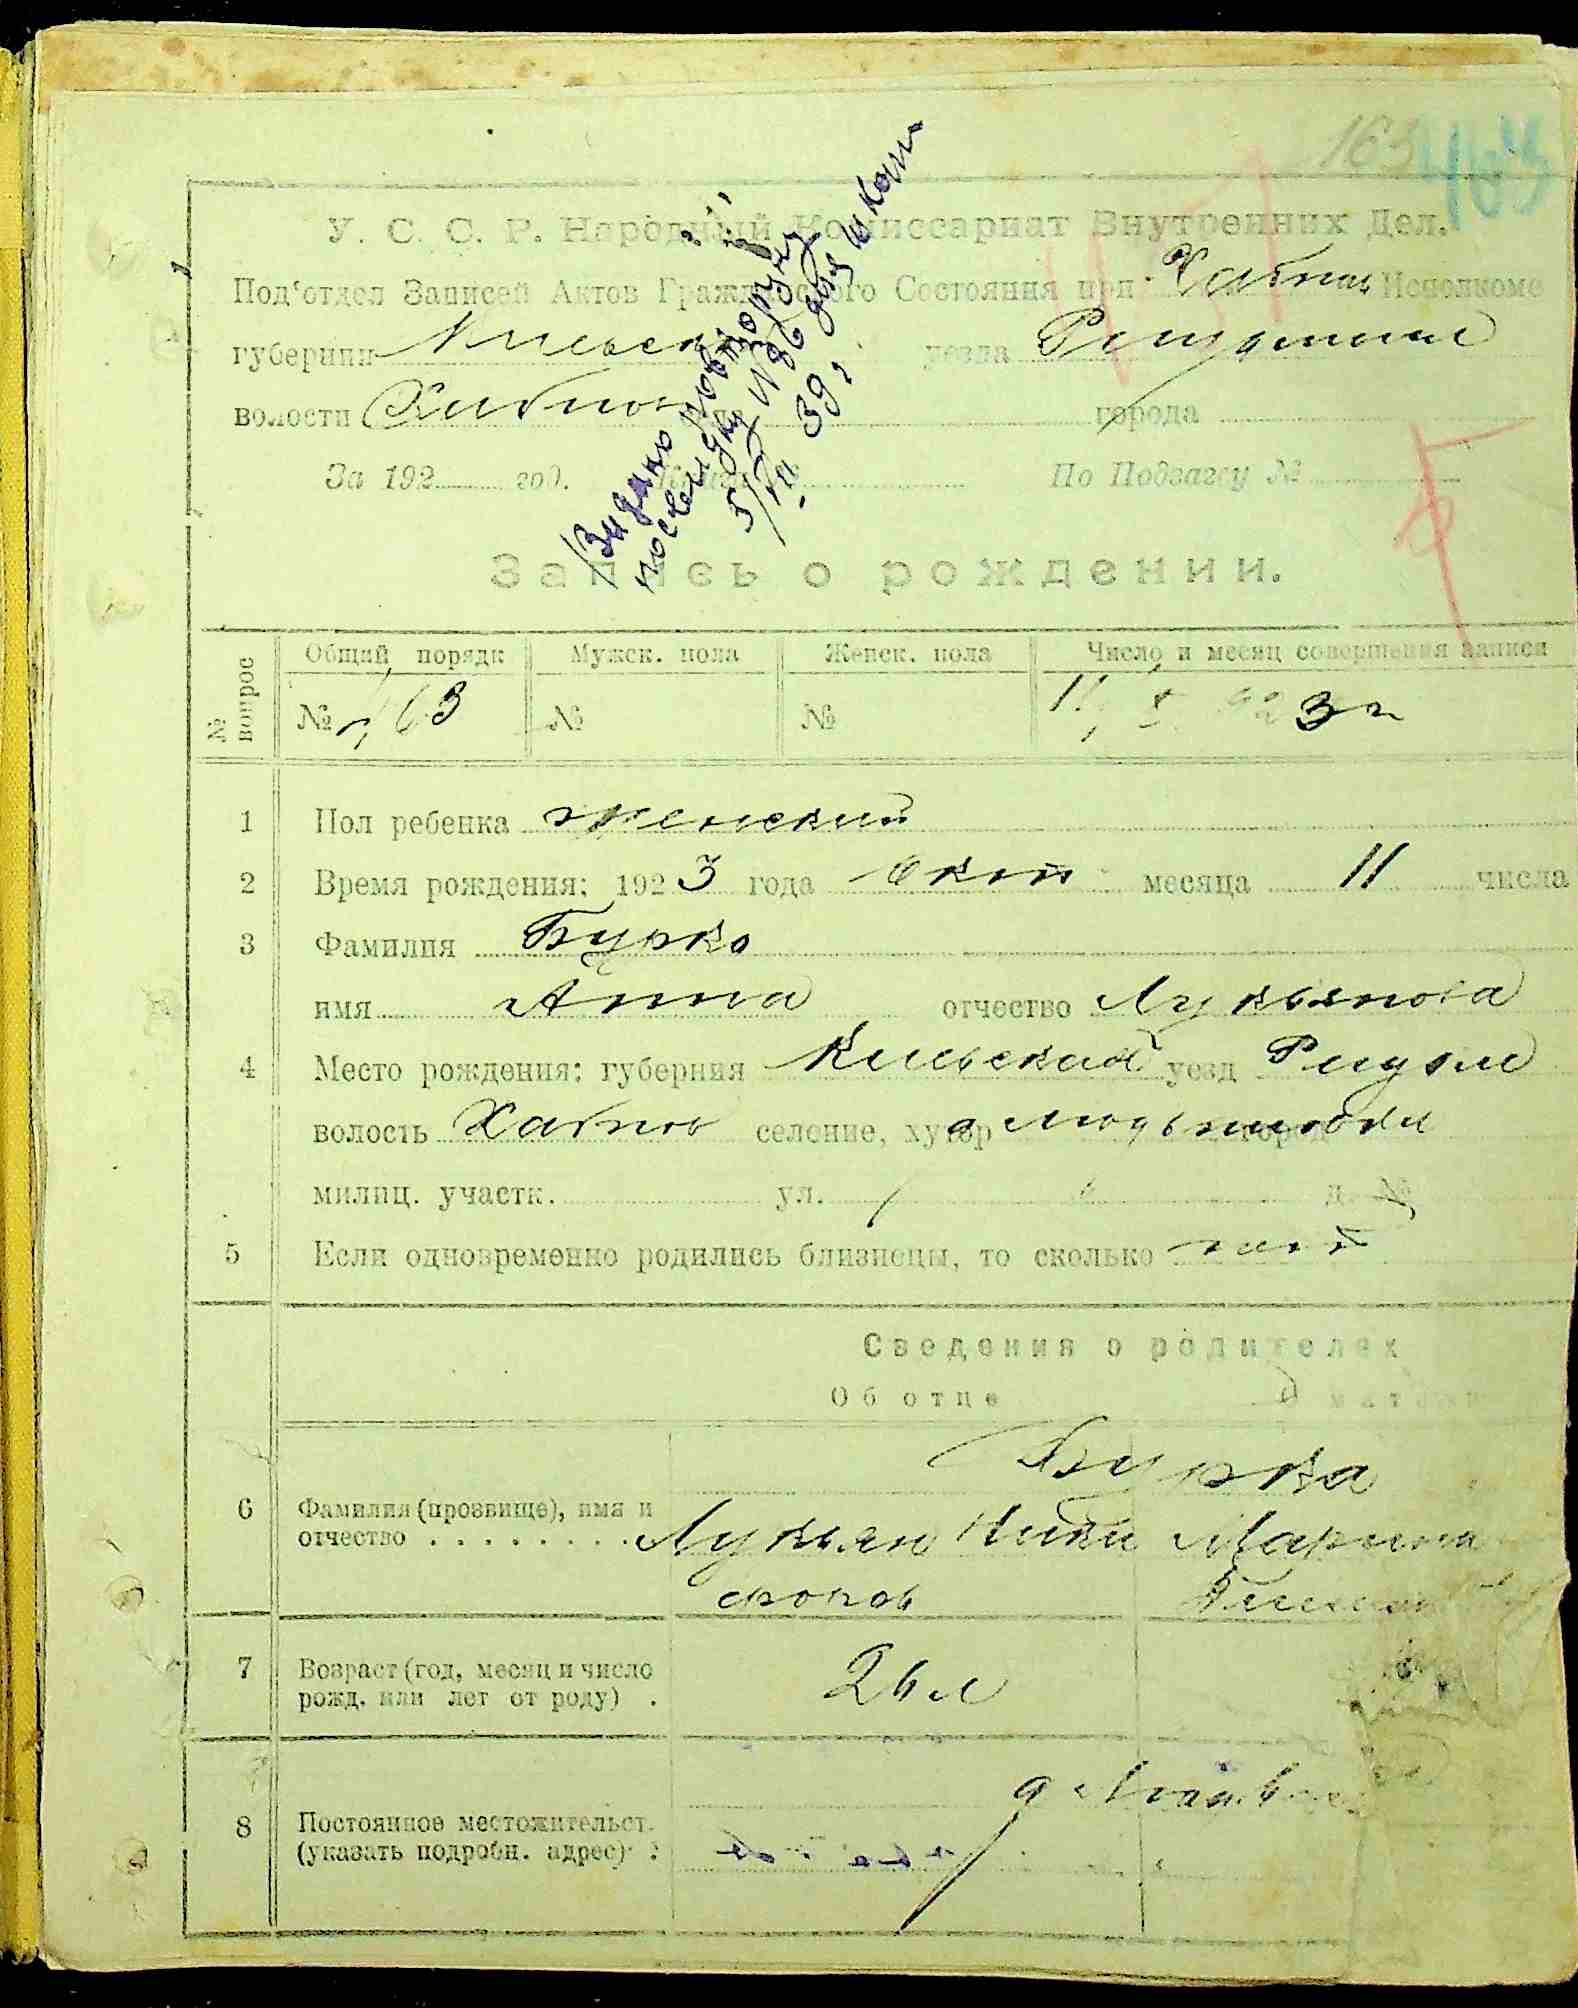 163 463
У. С. С. Р. Народный Комиссариат Внутренних Дел.
Под'отдел Записей Актов Гражданского Состояния при Хабном Исполкоме
губернии Киевск уезда
волости Хабнов города
За 192 год. Книга По Подзагсу №
Видано повторну
посвідку № 86 для школи
39 г
Запись о рождении.
№ вопрос Общий порядк Мужск. пола Женск. пола Число и месяц совершения записи
№ 463 № № 11/X 923 г
1 Пол ребенка женский
2 Время рождения: 1923 года Окт месяца 11 числа
3 Фамилия Бурко
имя Анна отчество Лукьянова
4 Место рождения: губерния Киевская уезд
волость Хабнов селение, хутор
милиц. участк. ул. д. №
5 Если одновременно родились близнецы, то сколько нет
Сведения о родителях
Об отце О матери
Бурка
6 Фамилия (прозвище), имя и
отчество . . . . . . . . Лукьян Ники Марина
форов
7 Возраст (год, месяц и число
рожд. или лет от роду) . 26 л
8 Постоянное местожительст.
(указать подробн. адрес) :